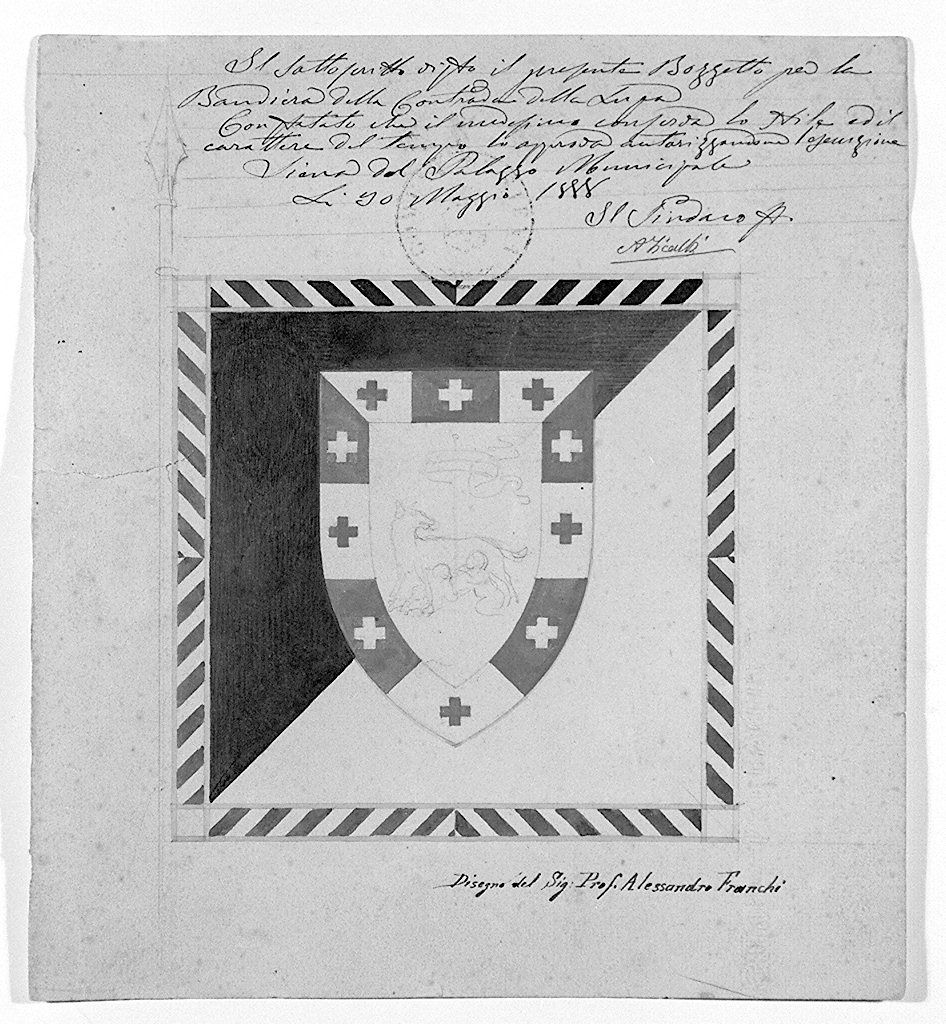 Il sottoscritto visto il presente Bozzetto per la
Bandiera della Contrada della Lupa
Constatato che il medesimo conserva lo stile ed il
carattere del tempo lo approva autorizzandone l'esecuzione
Siena dal Palazzo Municipale
Li 30 Maggio 1888
Il Sindaco ff.
Disegno del Sig: Prof. Alessandro Franchi